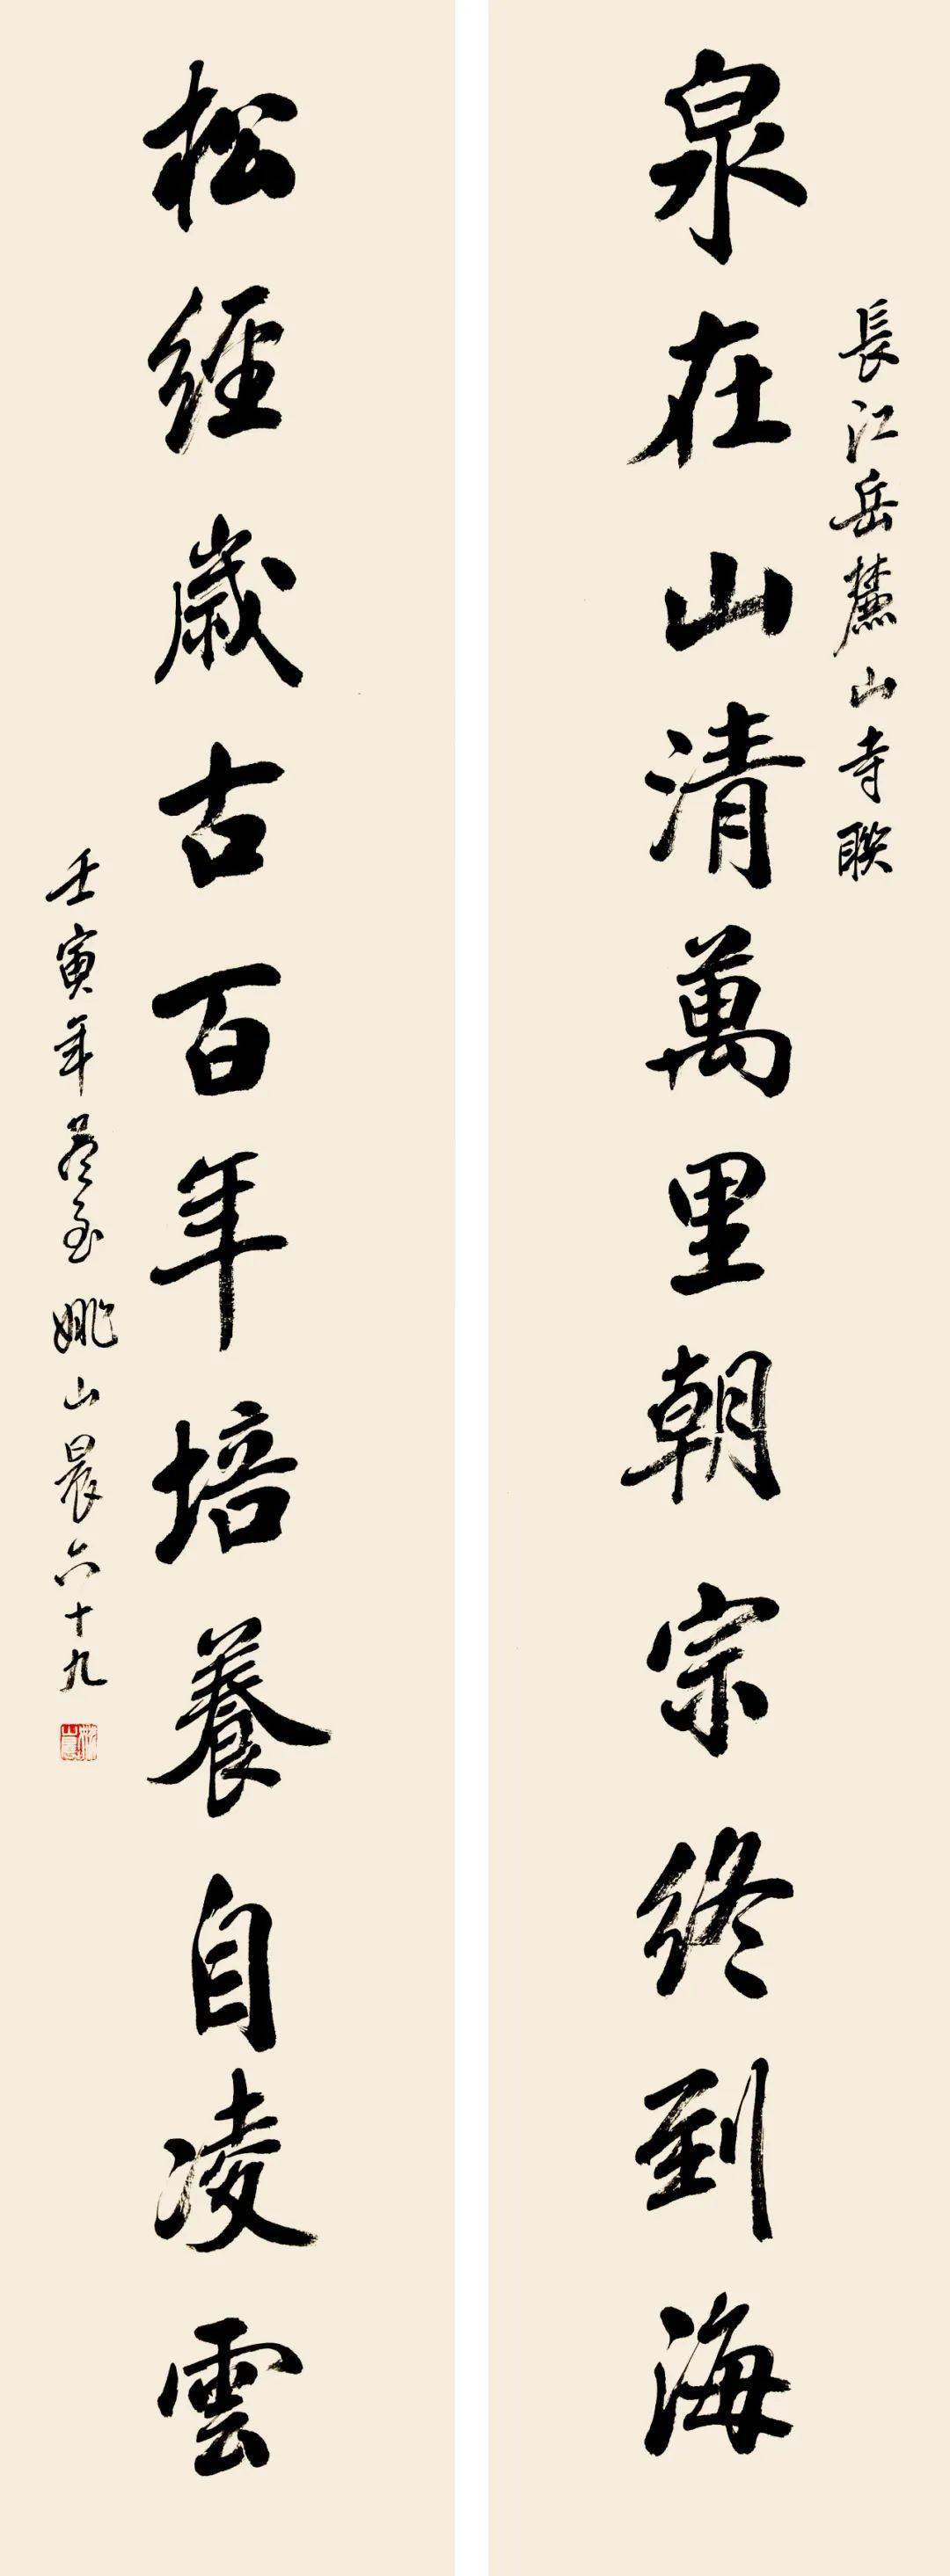 長江岳麓山寺聯
泉在山清萬里朝宗終到海
松經歲古百年培養自凌雲
壬寅年至 姚山晨六十九